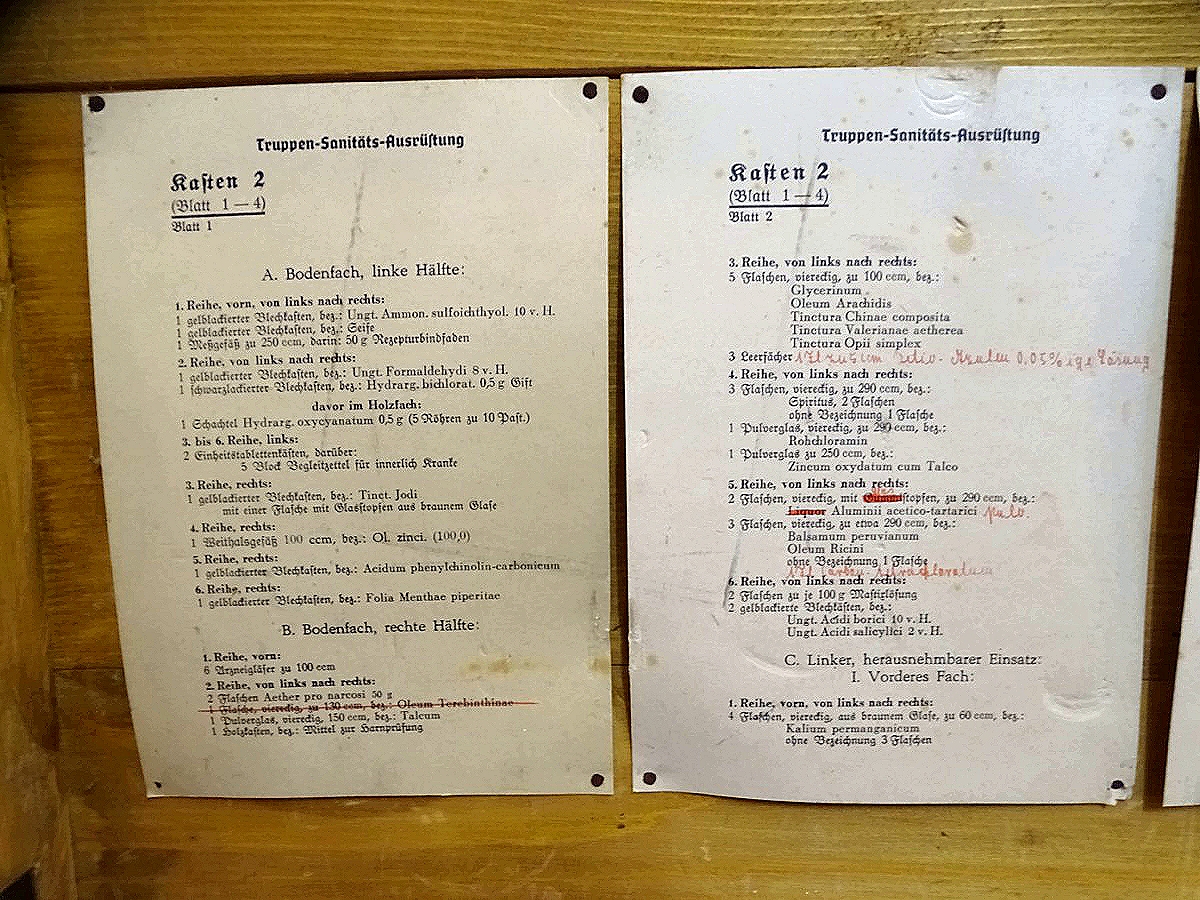 Truppen-Sanitäts-Ausrüstung
Kasten 2
(Blatt 1 — 4)
Blatt 1
A. Bodenfach, linke Hälfte:
1. Reihe, vorn, von links nach rechts:
1 gelblackierter Blechkasten, bez.: Ungt. Ammon. sulfoichthyol. 10 v. H.
1 gelblackierter Blechkasten, bez.: Seife
1 Meßgefäß zu 250 ccm, darin: 50 g Rezepturbindfaden
2. Reihe, von links nach rechts:
1 gelblackierter Blechkasten, bez.: Ungt. Formaldehydi 8 v. H.
1 schwarzlackierter Blechkasten, bez.: Hydrarg. bichlorat. 0,5 g Gift
davor im Holzfach:
1 Schachtel Hydrarg. oxycyanatum 0,5 g (5 Röhren zu 10 Past.)
3. bis 6. Reihe, links:
2 Einheitstablettenkästen, darüber:
5 Block Begleitzettel für innerlich Kranke
3. Reihe, rechts:
1 gelblackierter Blechkasten, bez.: Tinct. Jodi
mit einer Flasche mit Glasstopfen aus braunem Glase
4. Reihe, rechts:
1 Weithalsgefäß 100 ccm, bez.: Ol. zinci. (100,0)
5. Reihe, rechts:
1 gelblackierter Blechkasten, bez.: Acidum phenylchinolin-carbonicum
6. Reihe, rechts:
1 gelblackierter Blechkasten, bez.: Folia Menthae piperitae
B. Bodenfach, rechte Hälfte:
1. Reihe, vorn:
6 Arzneigläser zu 100 ccm
2. Reihe, von links nach rechts:
2 Flaschen Aether pro narcosi 50 g
1 Flasche, viereckig, zu 130 ccm, bez.: Oleum Terebinthinae
1 Pulverglas, viereckig, 150 ccm, bez.: Talcum
1 Holzkasten, bez.: Mittel zur Harnprüfung
Truppen-Sanitäts-Ausrüstung
Kasten 2
(Blatt 1 — 4)
Blatt 2
3. Reihe, von links nach rechts:
5 Flaschen, viereckig, zu 100 ccm, bez.:
Glycerinum
Oleum Arachidis
Tinctura Chinae composita
Tinctura Valerianae aetherea
Tinctura Opii simplex
3 Leerfächer 0,05% ige Lösung
4. Reihe, von links nach rechts:
3 Flaschen, viereckig, zu 290 ccm, bez.:
Spiritus, 2 Flaschen
ohne Bezeichnung 1 Flasche
1 Pulverglas, viereckig, zu 290 ccm, bez.:
Rohchloramin
1 Pulverglas zu 250 ccm, bez.:
Zincum oxydatum cum Talco
5. Reihe, von links nach rechts:
2 Flaschen, viereckig, mit stopfen, zu 290 ccm, bez.:
Liquor Aluminii acetico-tartarici pulv.
3 Flaschen, viereckig, zu etwa 290 ccm, bez.:
Balsamum peruvianum
Oleum Ricini
ohne Bezeichnung 1 Flasche
6. Reihe, von links nach rechts:
2 Flaschen zu je 100 g Mastixlösung
2 gelblackierte Blechkästen, bez.:
Ungt. Acidi borici 10 v. H.
Ungt. Acidi salicylici 2 v. H.
C. Linker, herausnehmbarer Einsatz:
I. Vorderes Fach:
1. Reihe, vorn, von links nach rechts:
4 Flaschen, viereckig, aus braunem Glase, zu 60 ccm, bez.:
Kalium permanganicum
ohne Bezeichnung 3 Flaschen